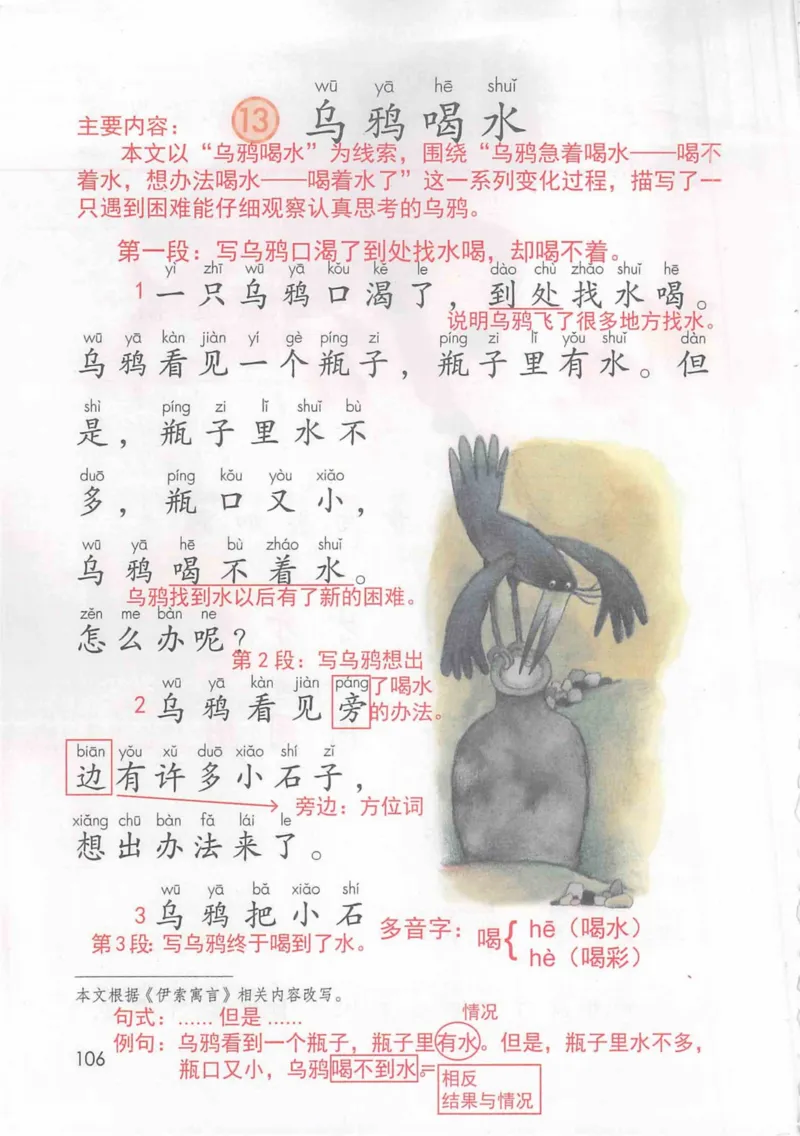 wū yā hē shuǐ
主要内容： 13 乌鸦喝水
本文以“乌鸦喝水”为线索，围绕“乌鸦急着喝水——喝不
着水，想办法喝水——喝着水了”这一系列变化过程，描写了一
只遇到困难能仔细观察认真思考的乌鸦。
第一段：写乌鸦口渴了到处找水喝，却喝不着。
yì zhī wū yā kǒu kě le dào chù zhǎo shuǐ hē
1 一只乌鸦口渴了，到处找水喝。
说明乌鸦飞了很多地方找水。
wū yā kàn jiàn yí gè píng zi píng zi lǐ yǒu shuǐ dàn
乌鸦看见一个瓶子，瓶子里有水。但
shì píng zi lǐ shuǐ bù
是，瓶子里水不
duō píng kǒu yòu xiǎo
多，瓶口又小，
wū yā hē bù zháo shuǐ
乌鸦喝不着水。
乌鸦找到水以后有了新的困难。
zěn me bàn ne
怎么办呢？
第2段：写乌鸦想出
了喝水
的办法。
wū yā kàn jiàn páng
2 乌鸦看见旁
biān yǒu xǔ duō xiǎo shí zǐ
边有许多小石子，
旁边：方位词
xiǎng chū bàn fǎ lái le
想出办法来了。
wū yā bǎ xiǎo shí
3 乌鸦把小石
第3段：写乌鸦终于喝到了水。
多音字：喝{ hē（喝水）
hè（喝彩）
本文根据《伊索寓言》相关内容改写。
句式：……但是……
情况
例句：乌鸦看到一个瓶子，瓶子里有水。但是，瓶子里水不多，
瓶口又小，乌鸦喝不到水。
相反
结果与情况
106